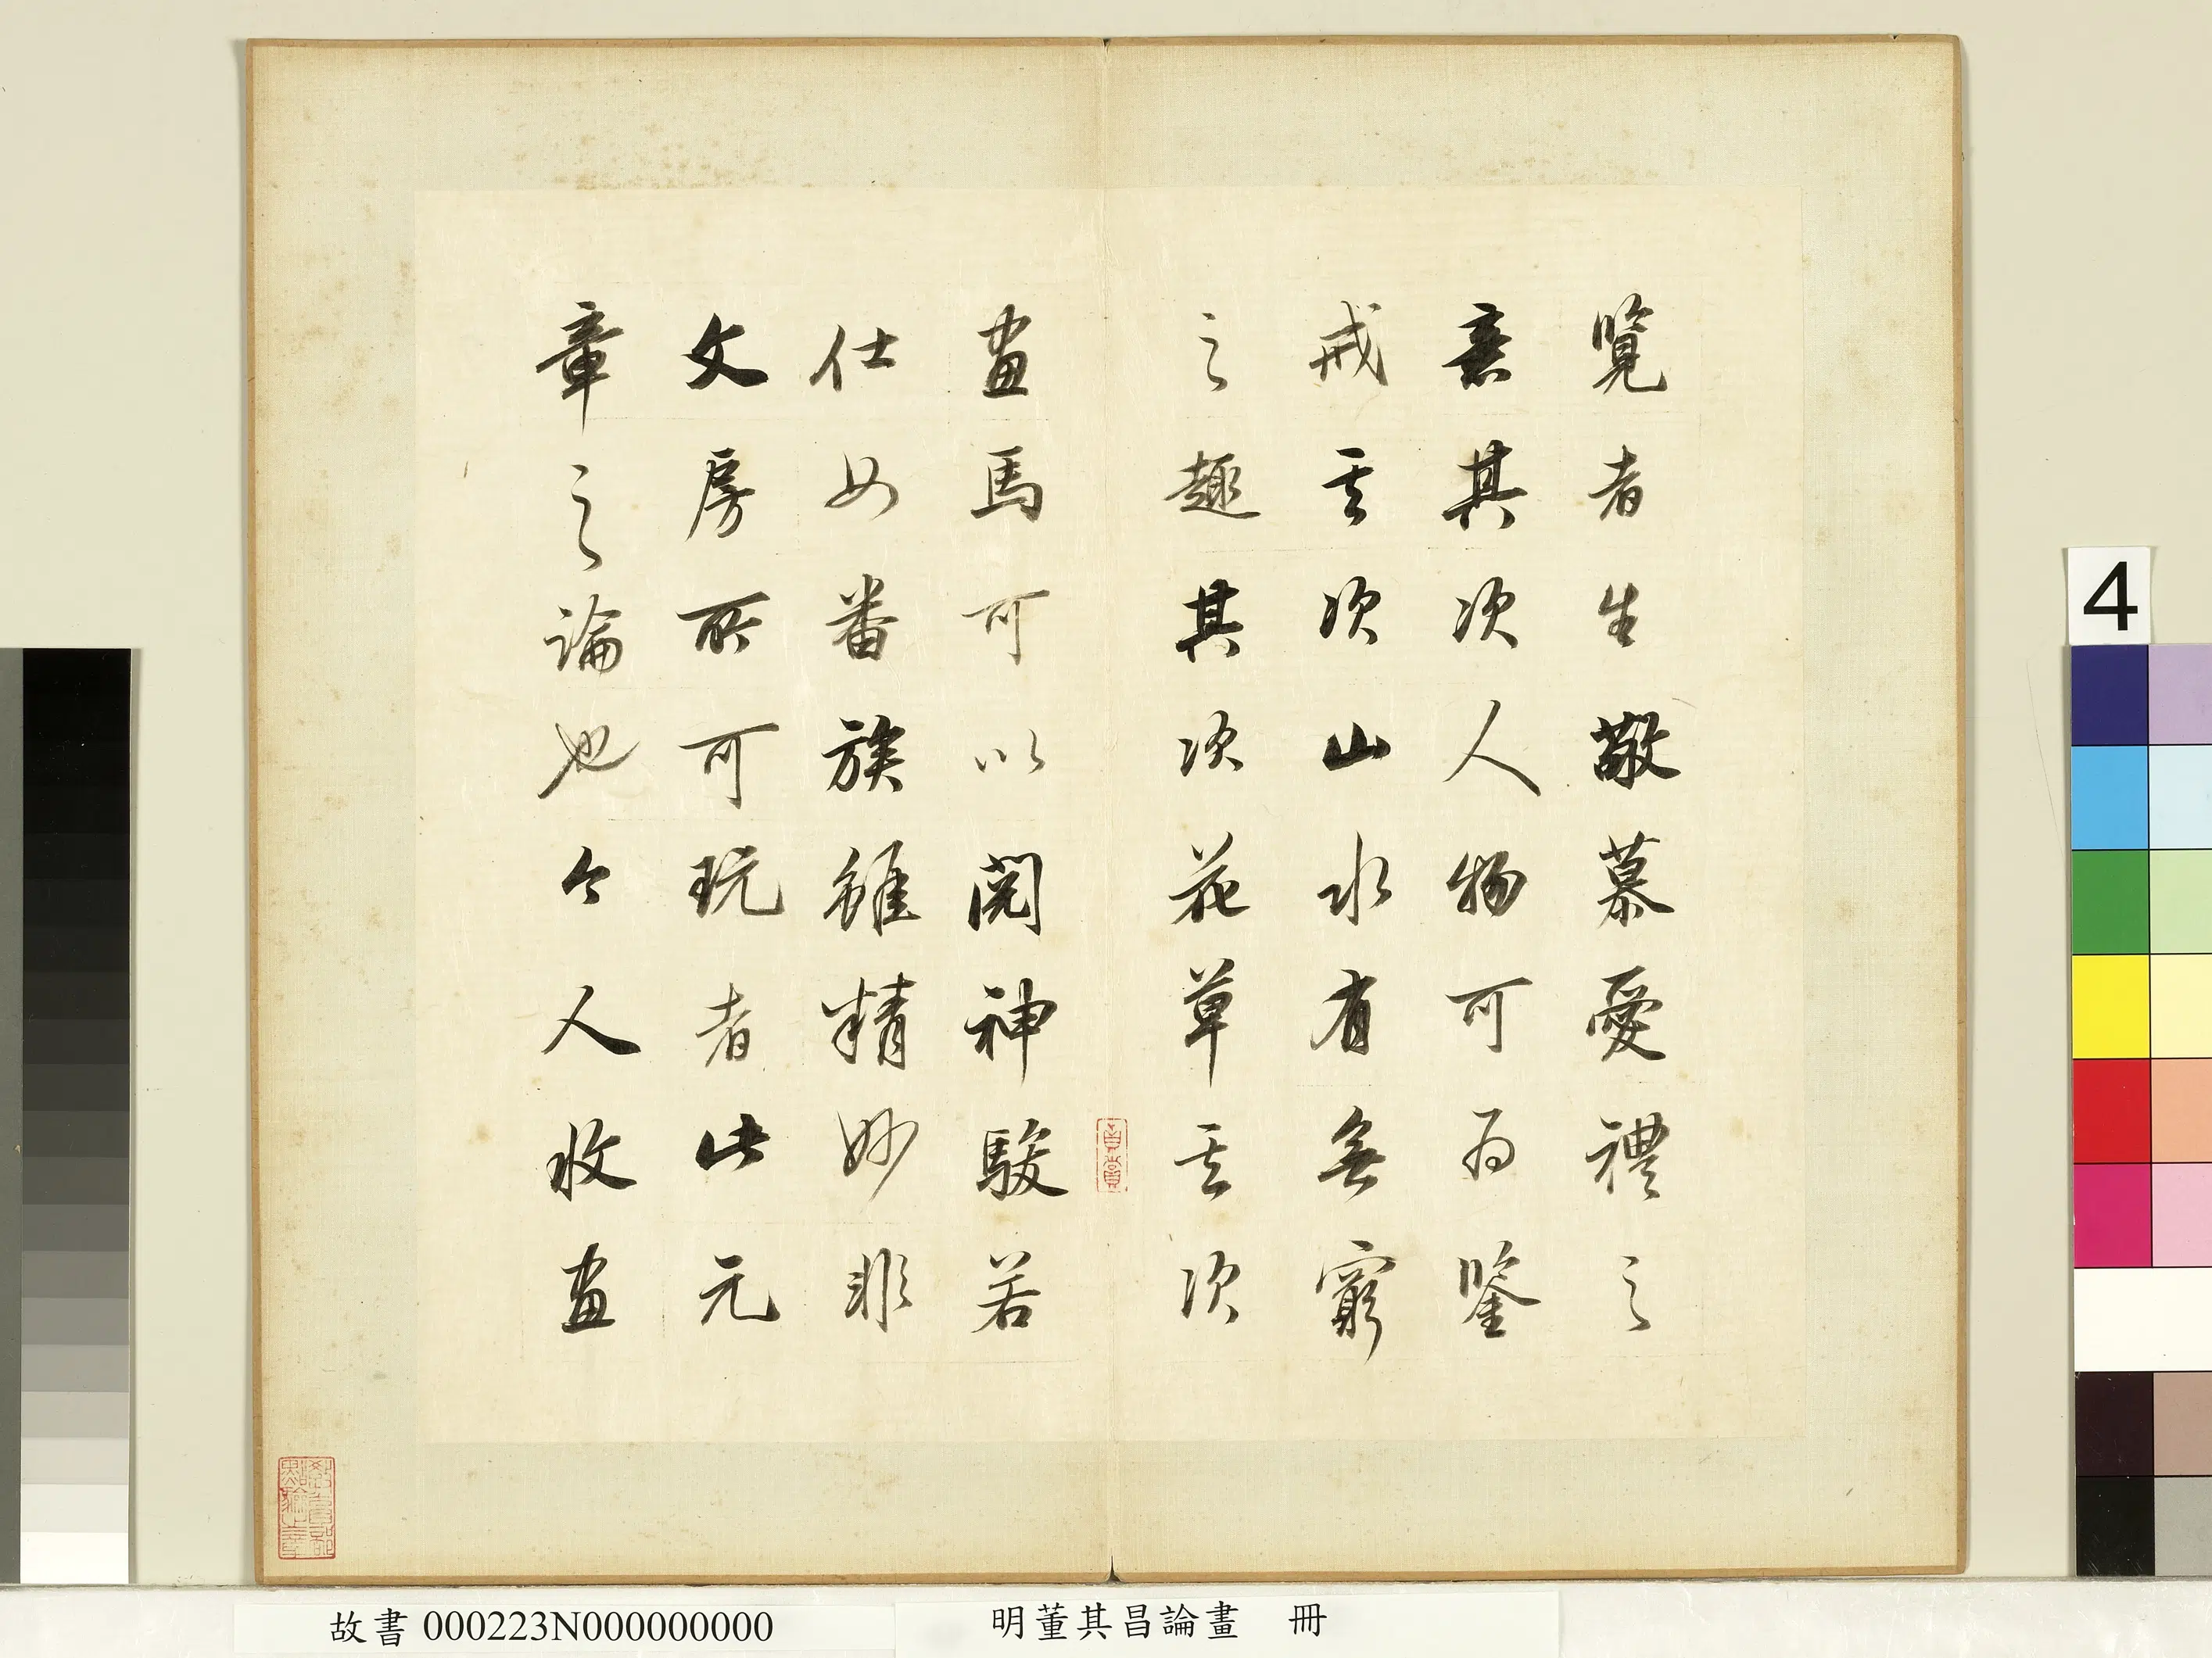 覽者生敬慕愛禮之
意其次人物可為鑒
戒其次山水有無窮
之趣其次花草其次
畫馬可以閱神駿若
仕女番族雖精妙非
文房所可玩者此元
章之論也今人收畫
教育部點驗之章
4
故書 000223N000000000
明董其昌論畫 冊